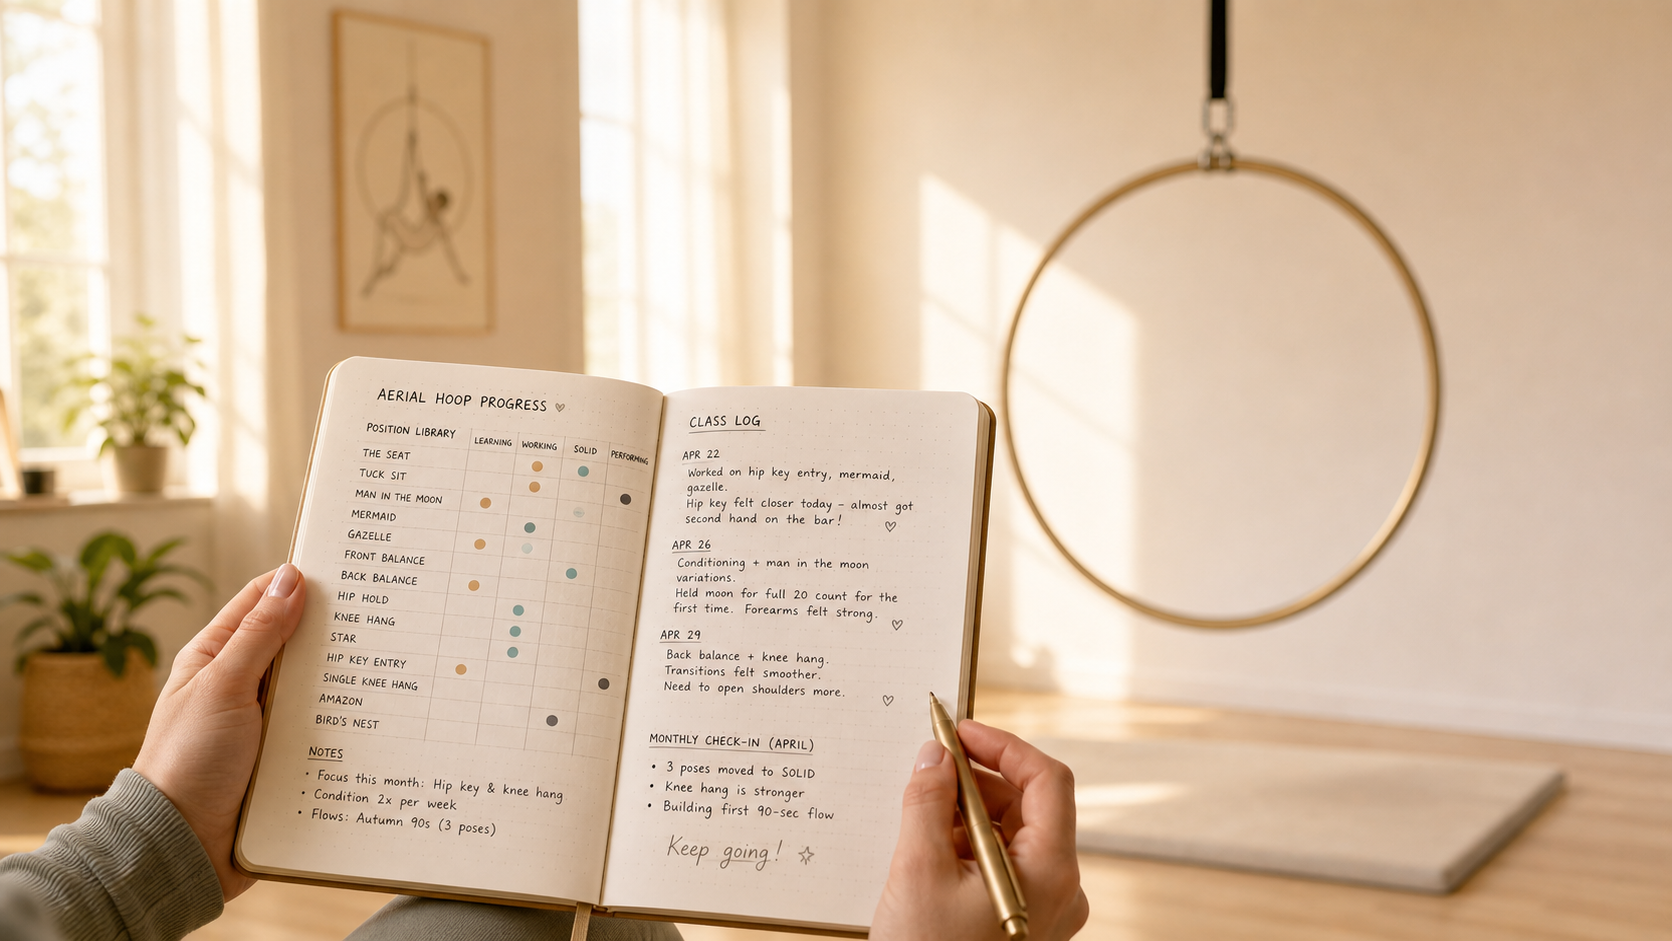 AERIAL HOOP PROGRESS
POSITION LIBRARY LEARNING WORKING SOLID PERFORMING
THE SEAT
TUCK SIT
MAN IN THE MOON
MERMAID
GAZELLE
FRONT BALANCE
BACK BALANCE
HIP HOLD
KNEE HANG
STAR
HIP KEY ENTRY
SINGLE KNEE HANG
AMAZON
BIRD'S NEST
NOTES
• Focus this month: Hip key & knee hang
• Condition 2x per week
• Flows: Autumn 90s (3 poses)
CLASS LOG
APR 22
Worked on hip key entry, mermaid,
gazelle.
Hip key felt closer today - almost got
second hand on the bar!
APR 26
Conditioning + man in the moon
variations.
Held moon for full 20 count for the
first time. Forearms felt strong.
APR 29
Back balance + knee hang.
Transitions felt smoother.
Need to open shoulders more.
MONTHLY CHECK-IN (APRIL)
• 3 poses moved to SOLID
• Knee hang is stronger
• Building first 90-sec flow
Keep going!